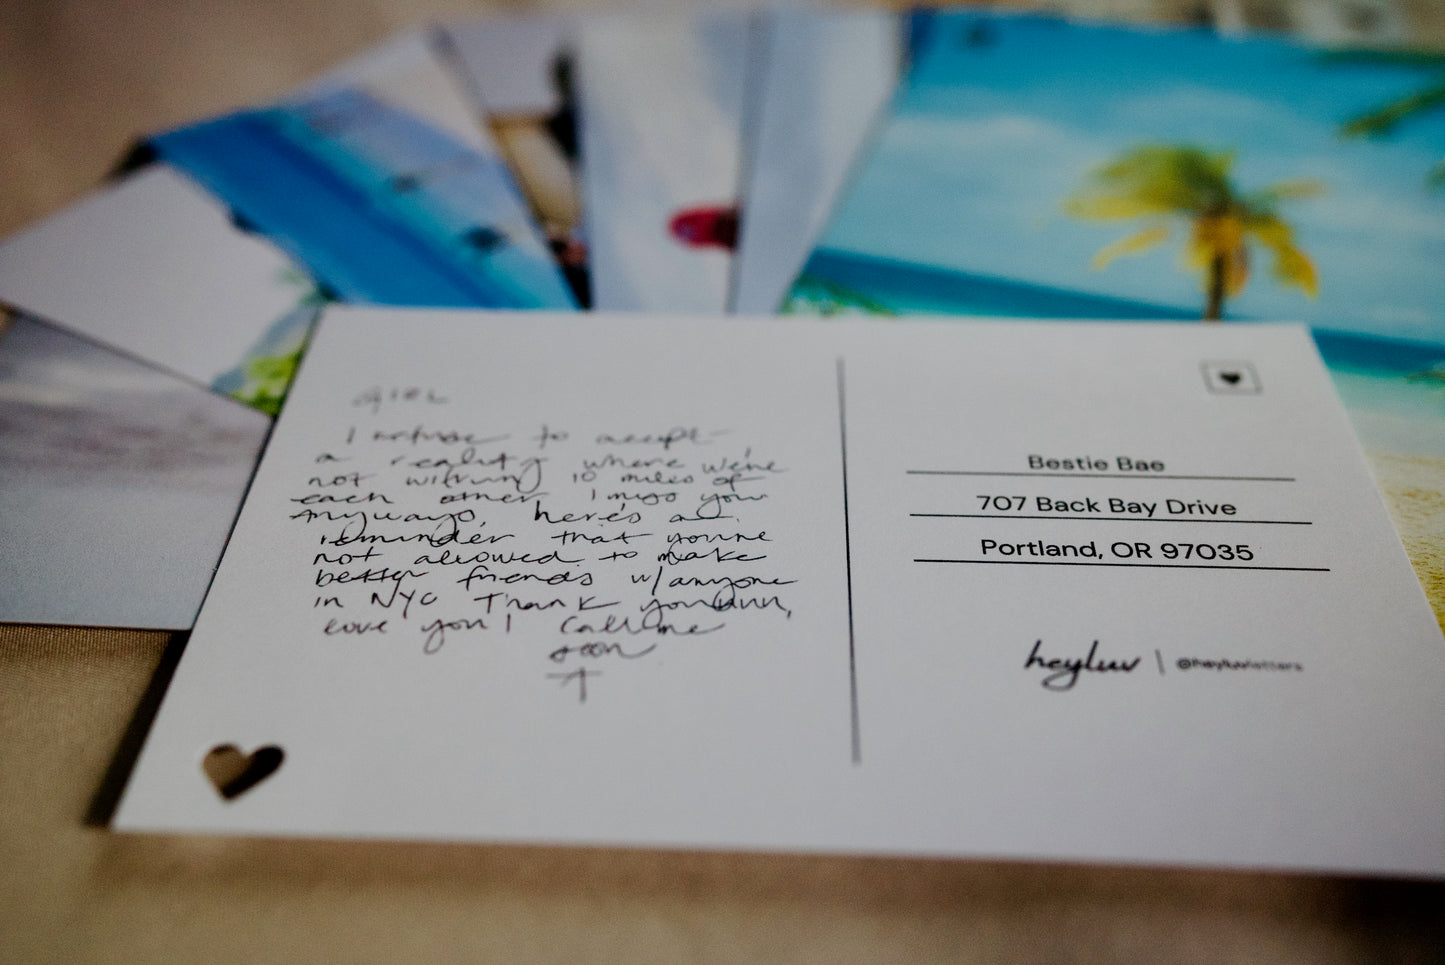 GIRL
I refuse to accept
a reality where we're
not within 10 miles of
each other I miss you
Anyways, here's a
reminder that you're
not allowed to make
better friends w/anyone
in NYC Thank you
Love you! Call me
soon
Bestie Bae
707 Back Bay Drive
Portland, OR 97035
heyluv | @heyluvletters